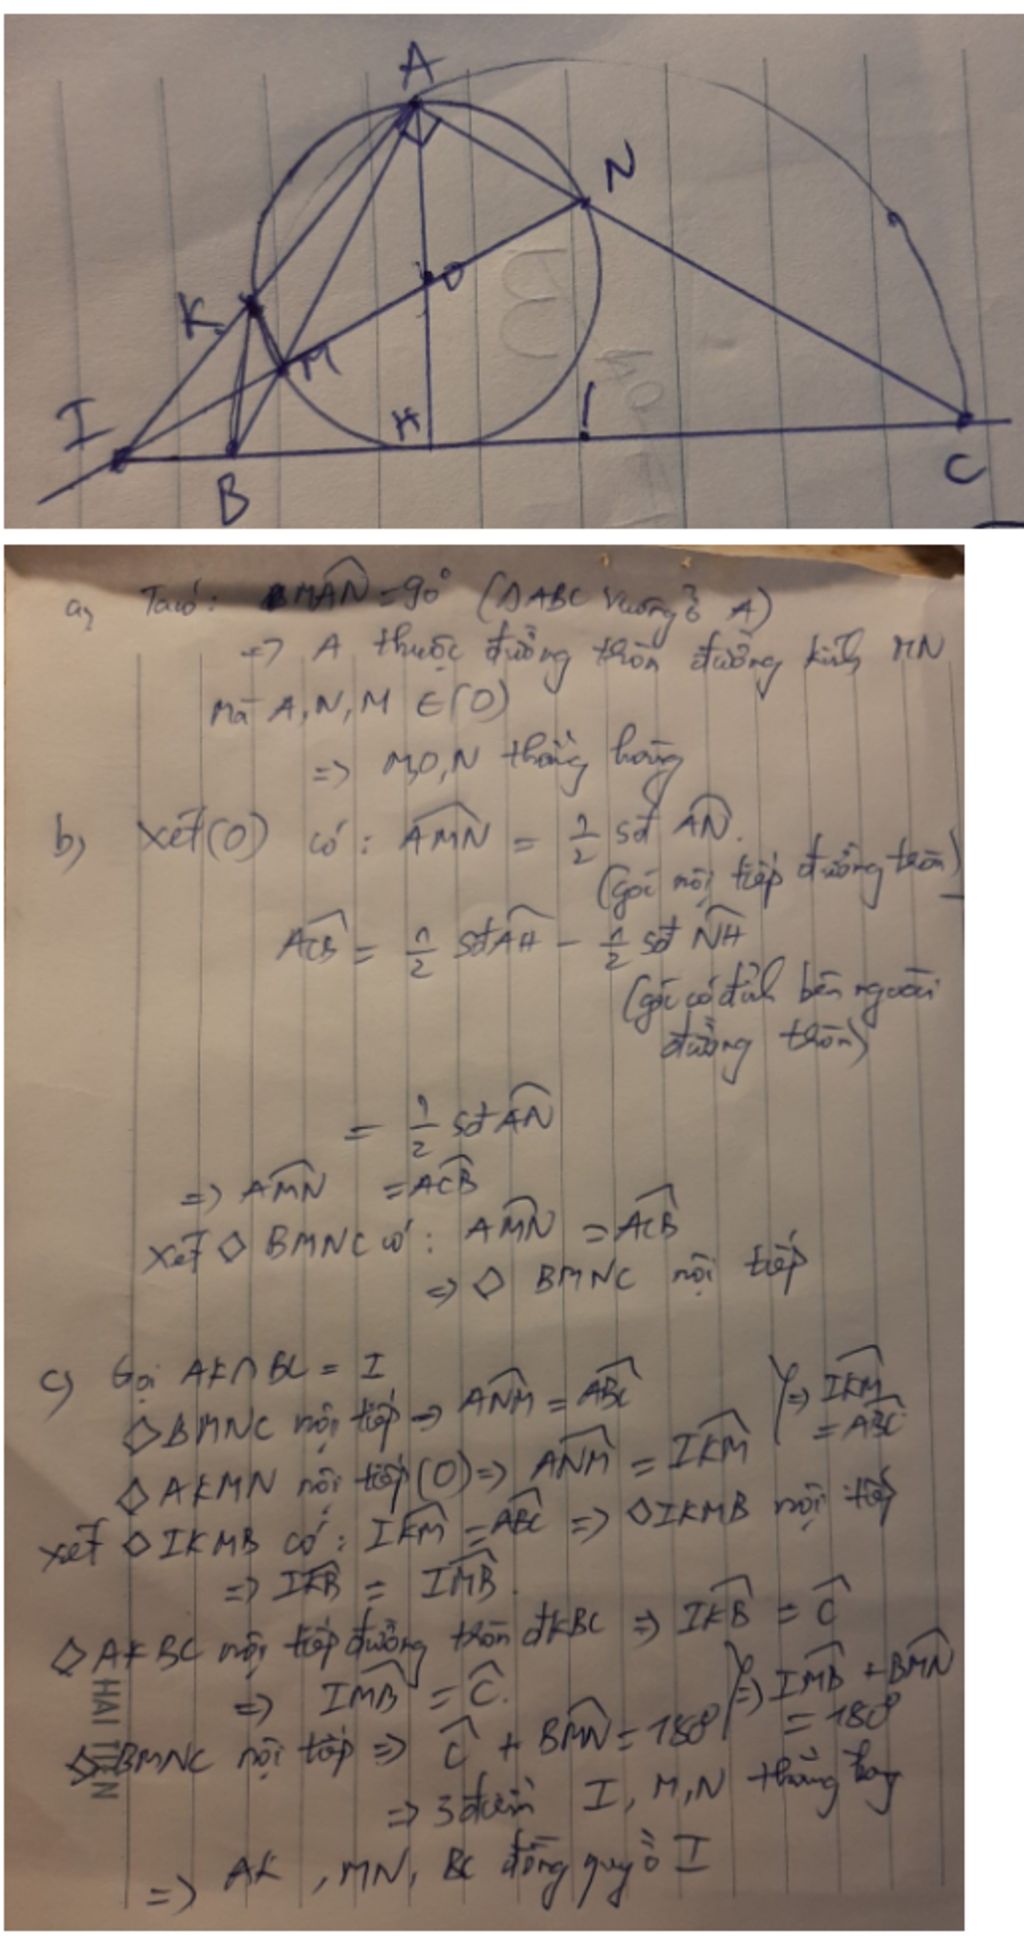 A
N
K
O
M
I
H
B
C
a, Ta có: MAN = 90° (ΔABC vuông ở A)
=> A thuộc đường tròn đường kính MN
mà A, N, M ∈ (O)
=> M,O,N thẳng hàng
b) Xét (O) có: AMN = 1/2 sđ AN.
(góc nội tiếp đường tròn)
ACB = 1/2 sđ AH - 1/2 sđ NH
(góc có đỉnh bên ngoài
đường tròn)
= 1/2 sđ AN
=> AMN = ACB
xét ◇ BMNC có: AMN = ACB
=> ◇ BMNC nội tiếp
c) Gọi AK ∩ BC = I
◇ BMNC nội tiếp => ANM = ABC } => IKM
◇ AKMN nội tiếp (O) => ANM = IKM = ABC
xét ◇ IKMB có: IKM = ABC => ◇ IKMB nội tiếp
=> IKB = IMB.
◇ AKBC nội tiếp đường tròn đkBC => IKB = C
=> IMB = C. } => IMB + BMN
◇ BMNC nội tiếp => C + BMN = 180° = 180°
=> 3 điểm I, M, N thẳng hàng
=> AK, MN, BC đồng quy ở I
HAI TIEN